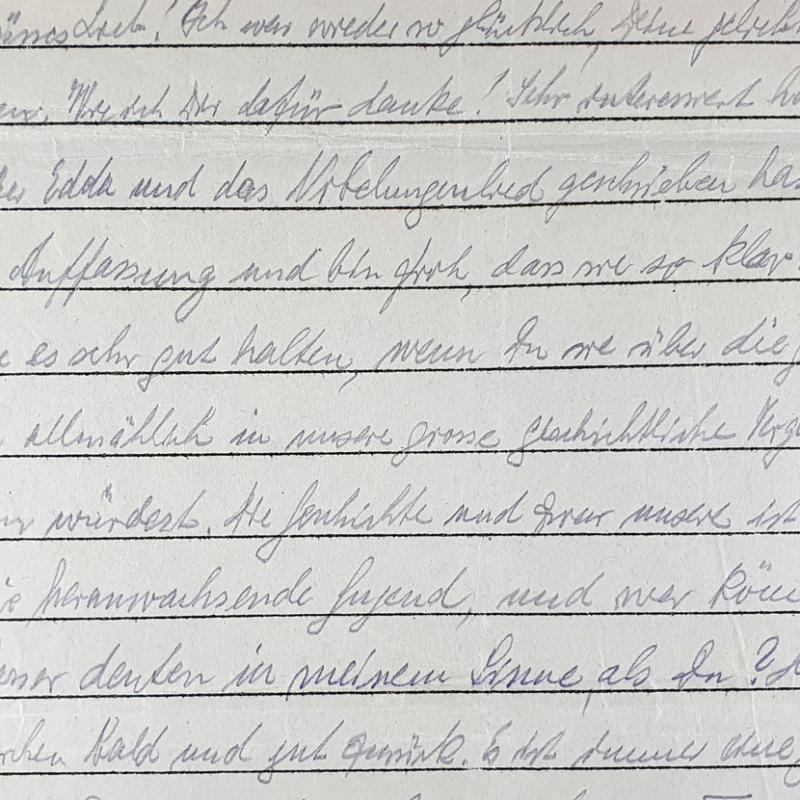 Lieb! Ich war wieder so glücklich, Deine
Wie ich Dir dafür danke! Sehr interessiert
Edda und das Nibelungenlied geschrieben has
Auffassung und bin froh, dass sie so klar
es sehr gut halten, wenn Du sie über die
allmählich in unsere grosse geschichtliche Verg
würdest. Die Geschichte und zwar unsere ist
heranwachsende Jugend, und wer kön
deuten in meinem Sinne, als Du?
Bald und gut zurück. Es ist immer